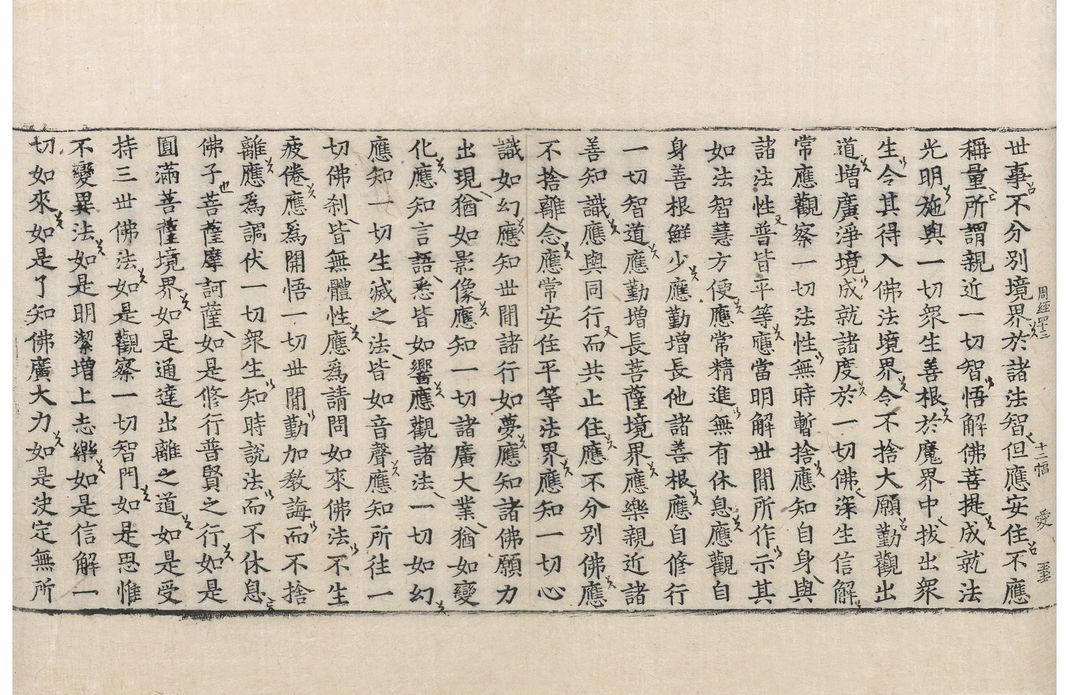 周經四十三 十二幅 愛
世事不分別境界於諸法智但應安住不應
稱量所謂親近一切智悟解佛菩提成就法
光明施與一切衆生善根於魔界中拔出衆
生令其得入佛法境界令不捨大願勤觀出
道增廣淨境成就諸度於一切佛深生信解
常應觀察一切法性無時暫捨應知自身與
諸法性普皆平等應當明解世間所作示其
如法智慧方便應常精進無有休息應觀自
身善根鮮少應勤增長他諸善根應自修行
一切智道應勤增長菩薩境界應樂親近諸
善知識應與同行而共止住應不分別佛應
不捨離念應常安住平等法界應知一切心
識如幻應知世間諸行如夢應知諸佛願力
出現猶如影像應知一切諸廣大業猶如變
化應知言語悉皆如響應觀諸法一切如幻
應知一切生滅之法皆如音聲應知所往一
切佛刹皆無體性應爲請問如來佛法不生
疲倦應爲開悟一切世間勤加教誨而不捨
離應爲調伏一切衆生知時說法而不休息
佛子菩薩摩訶薩如是修行普賢之行如是
圓滿菩薩境界如是通達出離之道如是受
持三世佛法如是觀察一切智門如是思惟
不變異法如是明潔增上志樂如是信解一
切如來如是了知佛廣大力如是決定無所